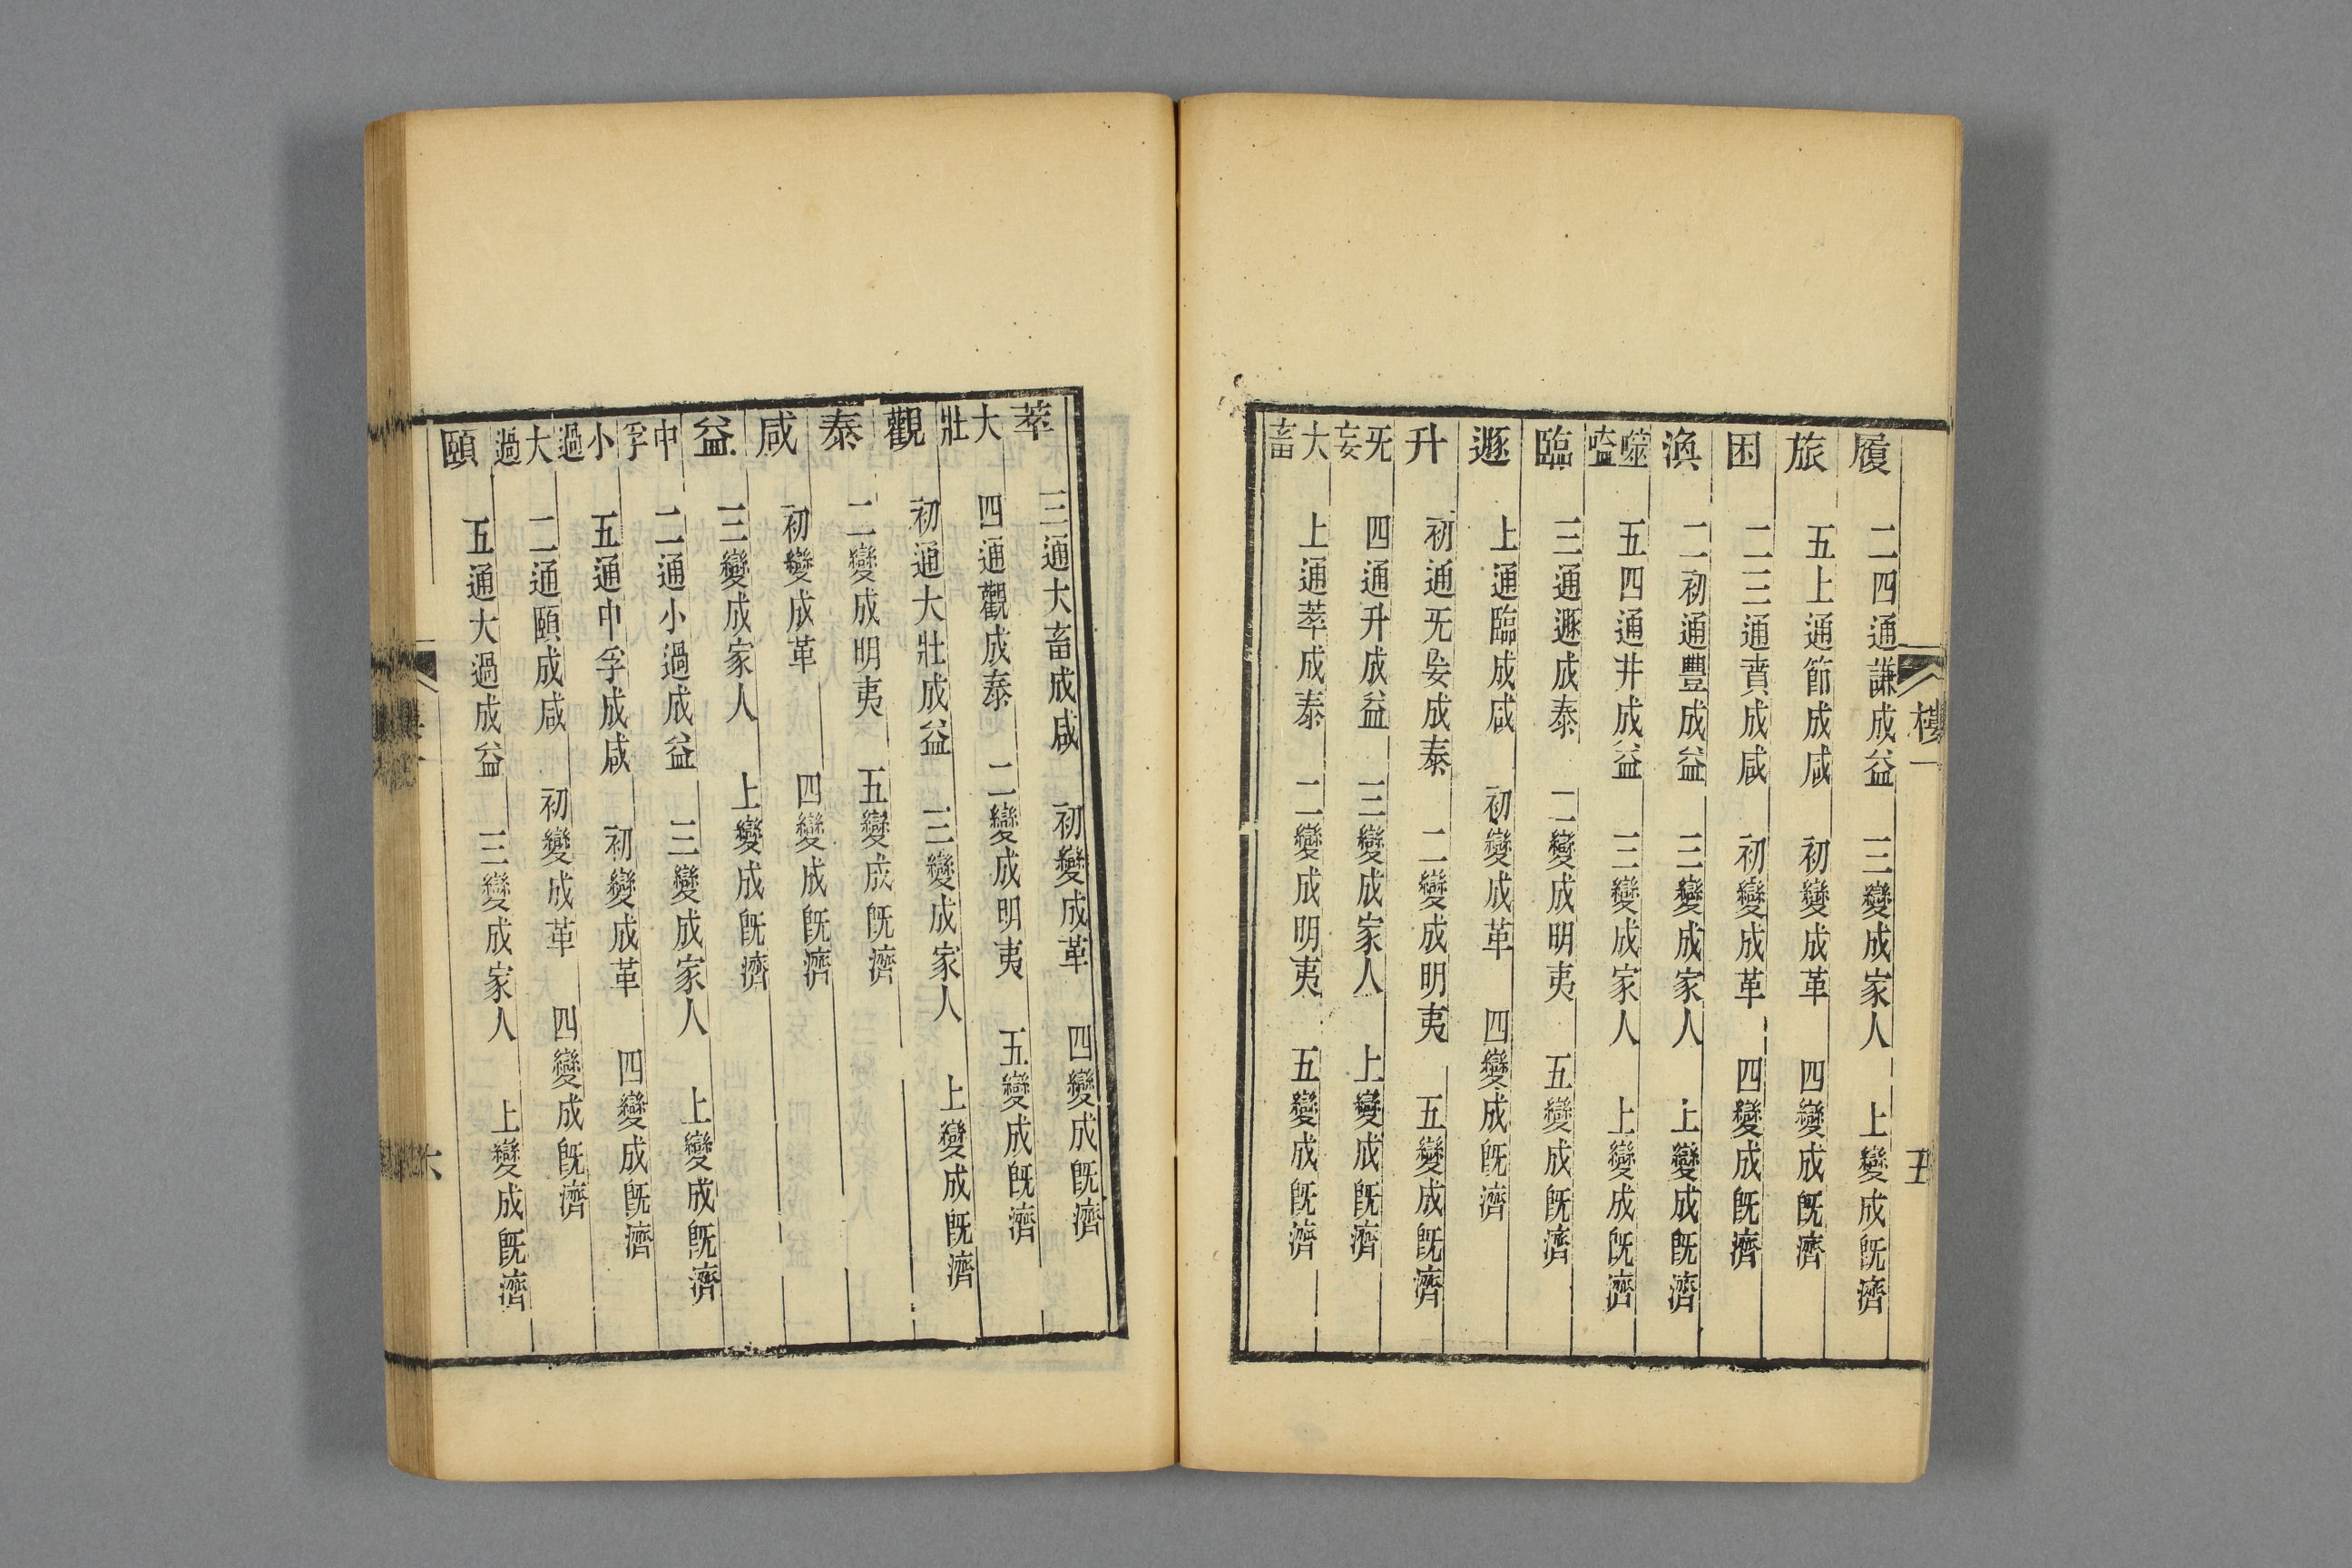 履 二四通謙成益 三變成家人 上變成旣濟
旅 五上通節成咸 初變成革 四變成旣濟
困 二三通賁成咸 初變成革 四變成旣濟
渙 二初通豐成益 三變成家人 上變成旣濟
噬嗑 五四通井成益 三變成家人 上變成旣濟
臨 三通遯成泰 二變成明夷 五變成旣濟
遯 上通臨成咸 初變成革 四變成旣濟
升 初通无妄成泰 二變成明夷 五變成旣濟
无妄 四通升成益 三變成家人 上變成旣濟
大畜 上通萃成泰 二變成明夷 五變成旣濟
五
萃 三通大畜成咸 初變成革 四變成旣濟
大壯 四通觀成泰 二變成明夷 五變成旣濟
觀 初通大壯成益 三變成家人 上變成旣濟
泰 二變成明夷 五變成旣濟
咸 初變成革 四變成旣濟
益 三變成家人 上變成旣濟
中孚 二通小過成益 三變成家人 上變成旣濟
小過 五通中孚成咸 初變成革 四變成旣濟
大過 二通頤成咸 初變成革 四變成旣濟
頤 五通大過成益 三變成家人 上變成旣濟
六